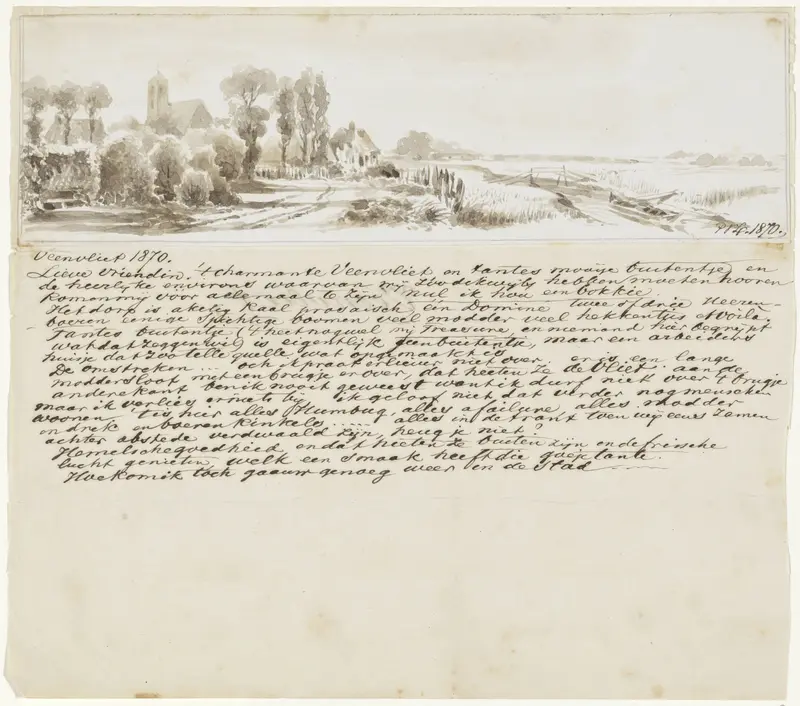 1870.
Veenvliet 1870.
Lieve vriendin. 't charmante Veenvliet en tantes mooije buitentje, en
de heerlijke environs waarvan wij zoo dikwijls hebben moeten hooren
komen mij voor allemaal te zijn nul ik hou een bokkie
Het dorp is akelig kaal prosaisch, één Domine twee of drie Heeren-
boeren eenige spichtige boomen veel modder veel hekkentjes et voila.
Tantes buitentje ('t heet nog wel mij Treasure, en niemand hier begrijpt
wat dat zeggen wil) is eigentlijk geen buitentje, maar een arbeiders
huisje dat zoo telle quelle wat opgemaakt is.
De omstreken ... och ik praat er liever niet over. er is een lange
moddersloot met een brugje er over, dat heeten ze de Vliet. aan de
andere kant ben ik nooit geweest want ik durf niet over 't brugje
maar ik verlies er niets bij ik geloof niet dat verder nog menschen
woonen 'tis hier alles Humbug, alles a failure alles modder
en drek en boeren kinkels ..... alles in de trant toen wij eens zamen
achter abstede verdwaald zijn, heug je niet?
Hemelsche goedheid en dat heeten ze buiten zijn en de frissche
lucht genieten, welk een smaak heeft die goeje tante.
Hoe kom ik toch gaauw genoeg weer in de stad